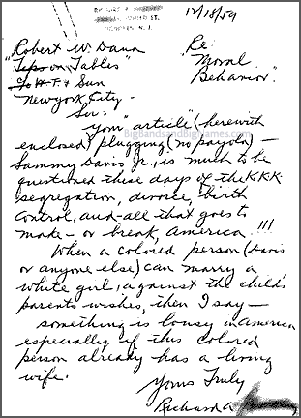 RICHARD A
ST.
N. J.
12/18/59
Robert W. Dana
"Tips on Tables"
c/o W.T. & Sun
New York City -
Re:
Moral
Behavior.
Sir:
Your "article" (herewith
enclosed) plugging (no payola) -
Sammy Davis Jr., is much to be
questioned these days of the K.K.K.
segregation, divorce, birth
control, and - all that goes to
make - or break, America!!!
When a colored person (Davis
or anyone else) can marry a
white girl, against the child's
parents wishes, then I say -
something is lousy in America
especially if this colored
person already has a living
wife.
Yours Truly
Richard A
BigBandsandBigNames.com